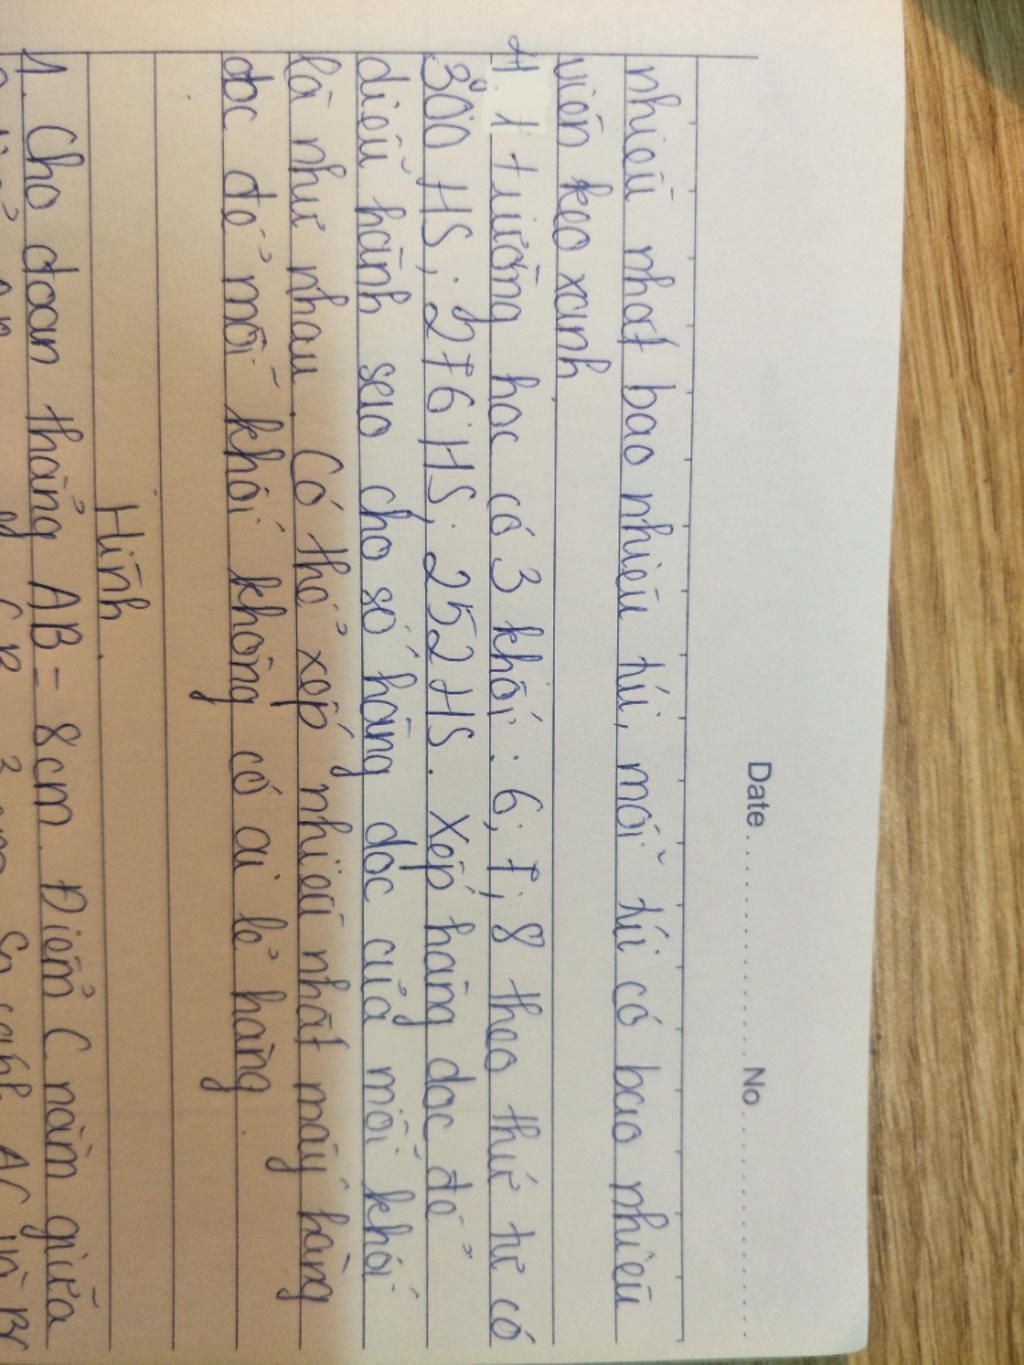 Date.................... No....................
nhiêu nhất bao nhiêu túi, mỗi túi có bao nhiêu
viên kẹo xanh.
4. 1 trường học có 3 khối : 6; 7; 8 theo thứ tự có
300 HS; 276 HS; 252 HS. Xếp hàng dọc để
diễu hành sao cho số hàng dọc của mỗi khối
là như nhau. Có thể xếp nhiều nhất mấy hàng
dọc để mỗi khối không có ai lẻ hàng.
Hình.
1. Cho đoạn thẳng AB = 8cm. Điểm C nằm giữa